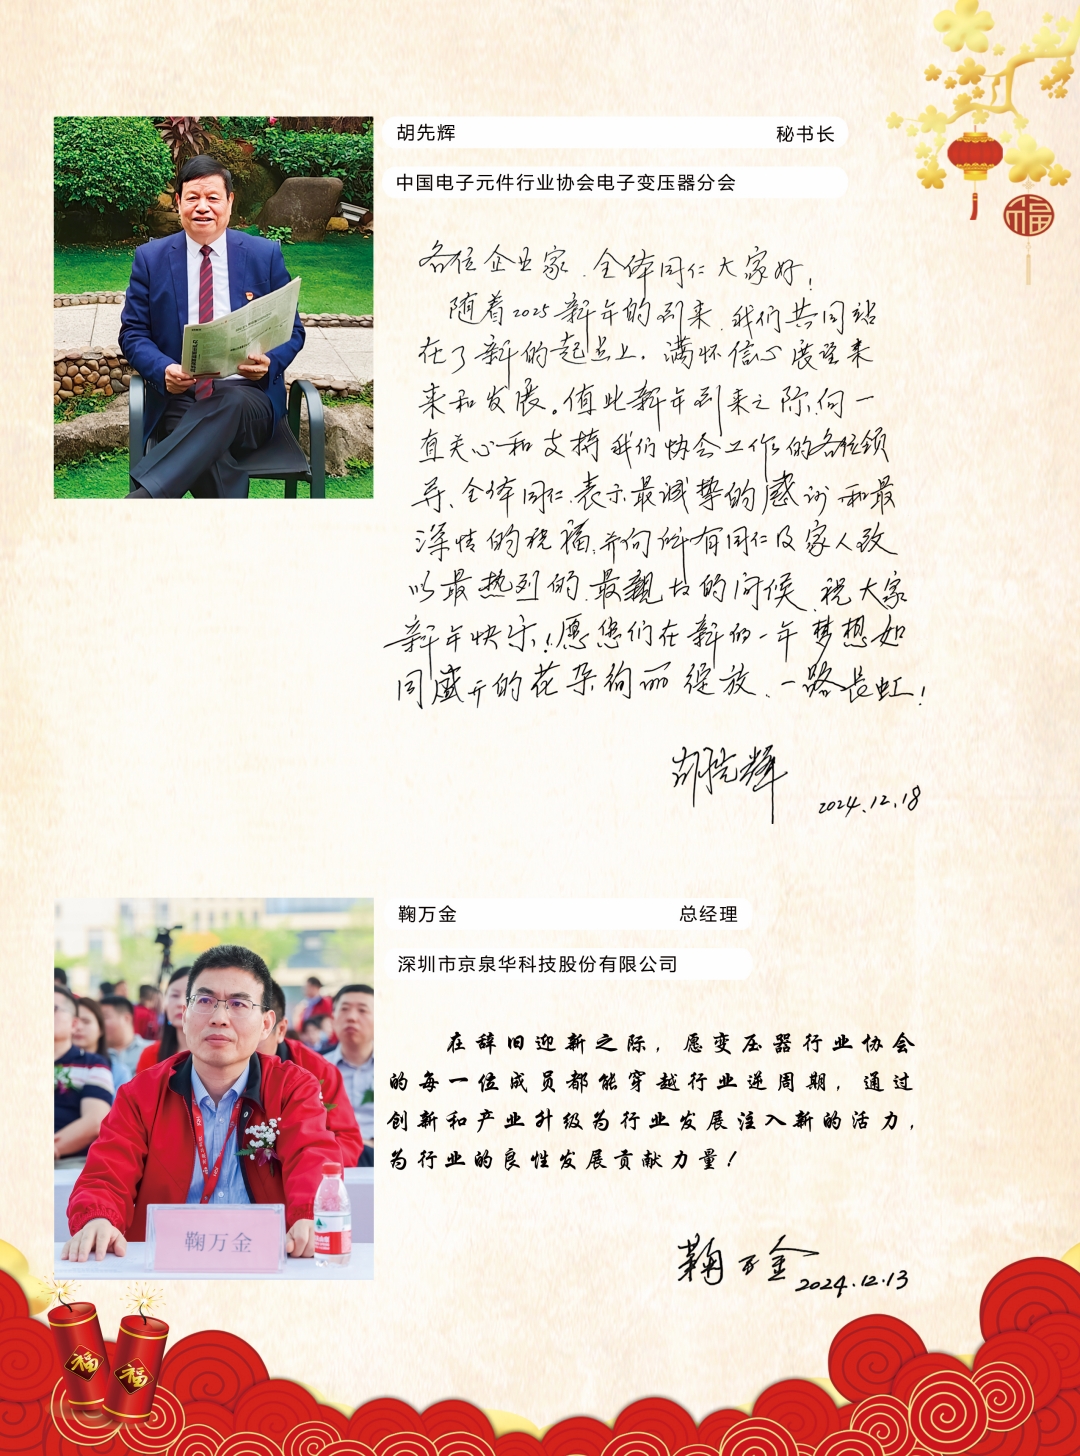 胡先辉 秘书长
中国电子元件行业协会电子变压器分会
各位企业家、全体同仁大家好！
随着2025新年的到来，我们共同站
在了新的起点上，满怀信心展望未
来和发展。值此新年到来之际，向一
直关心和支持我们协会工作的各位领
导、全体同仁、表示最诚挚的感谢和最
深情的祝福，并向所有同仁及家人致
以最热烈的、最親切的问候，祝大家
新年快乐！愿您们在新的一年梦想如
同盛开的花朵绚丽绽放、一路长虹！
胡先辉
2024.12.18
福
鞠万金 总经理
深圳市京泉华科技股份有限公司
在辞旧迎新之际，愿变压器行业协会
的每一位成员都能穿越行业逆周期，通过
创新和产业升级为行业发展注入新的活力，
为行业的良性发展贡献力量！
鞠万金
鞠万金 2024.12.13
福
福